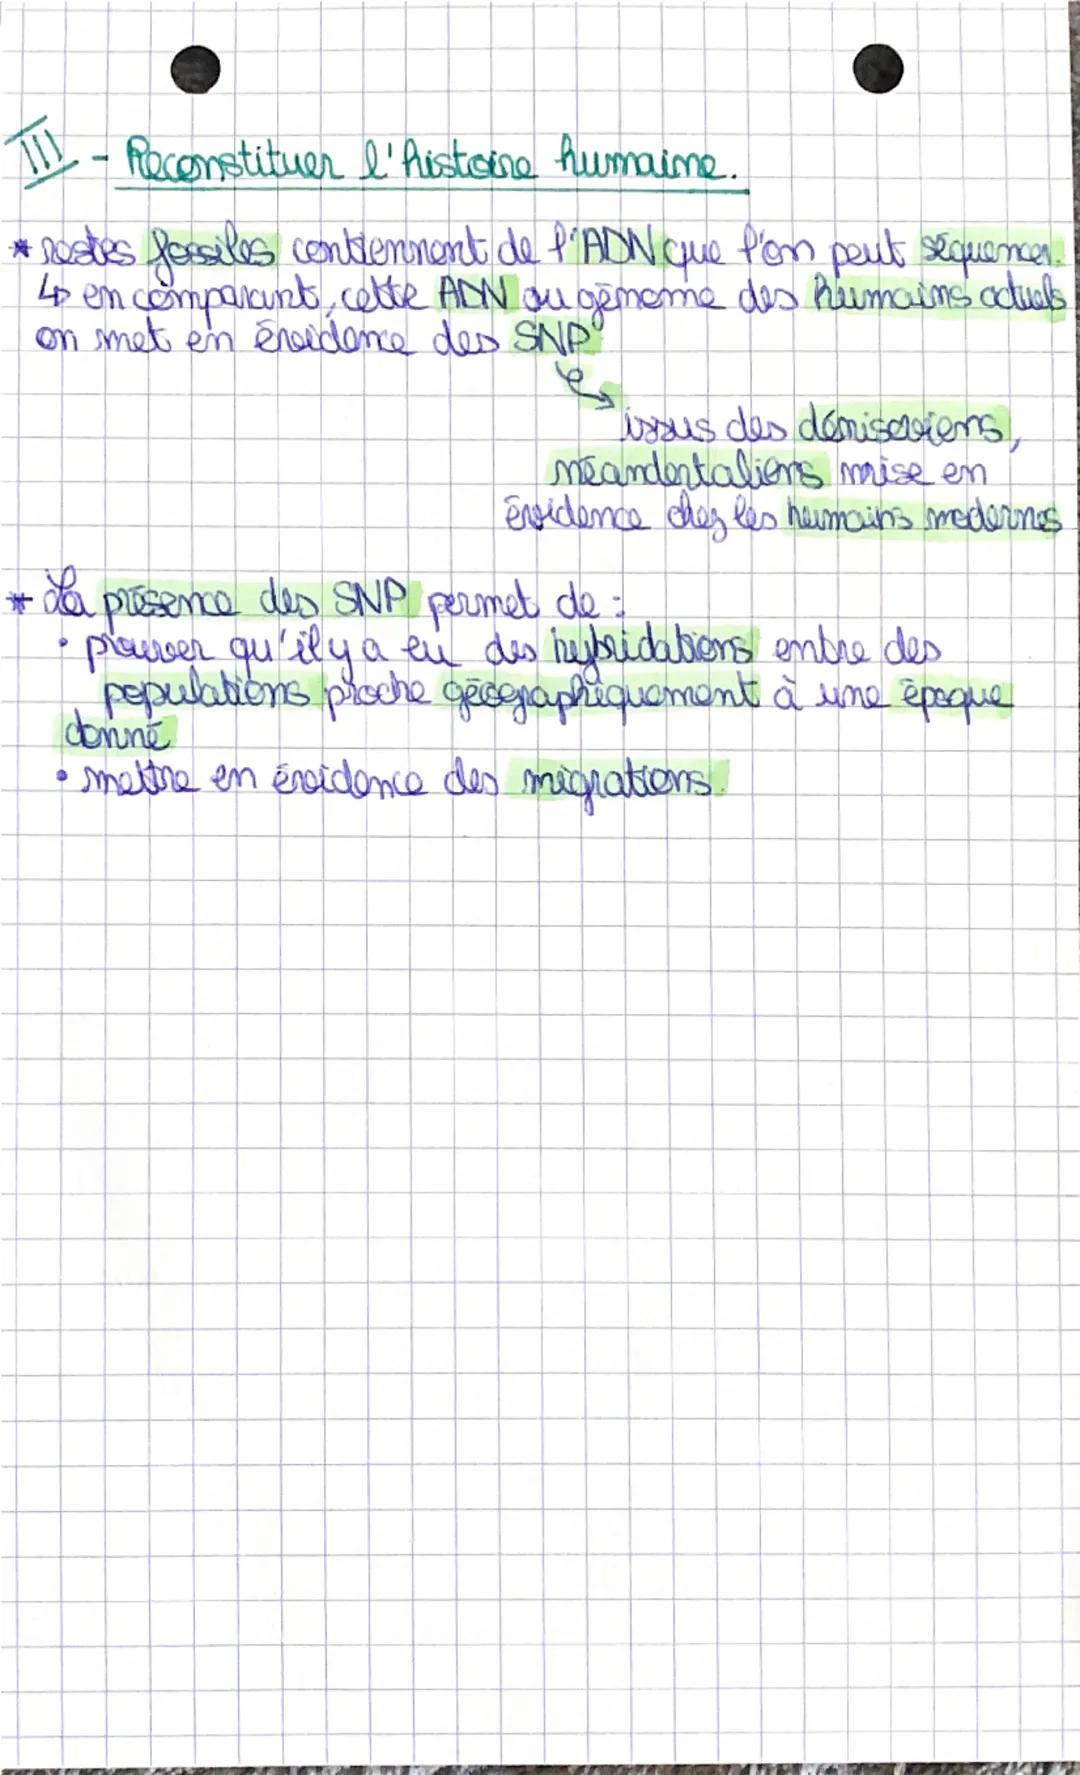 III - Reconstituer l'histoire humaine.
* restes fossiles contiennent de l'ADN que l'on peut séquencer.
↳ en comparant, cette ADN au génome des humains actuels
on met en évidence des SNP
issus des dénisoviens,
néandertaliens mise en
évidence chez les humains modernes
* La présence des SNP permet de :
• prouver qu'il y a eu des hybridations entre des
populations proche géographiquement à une époque
donné
• mettre en évidence des migrations.